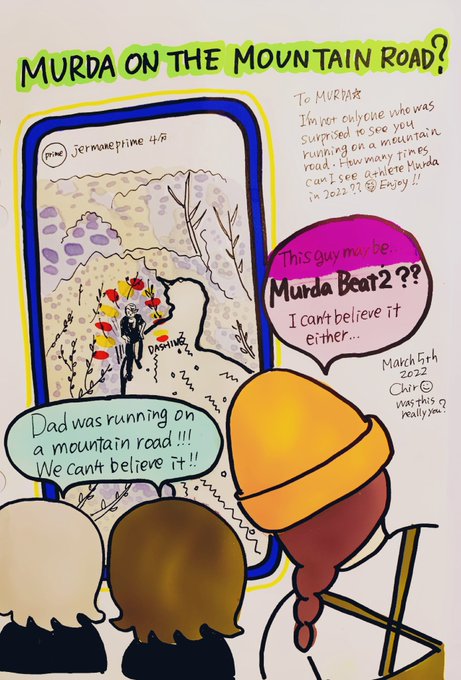 MURDA ON THE MOUNTAIN ROAD?
To MURDA☆
I'm not only one who was
surprised to see you
running on a mountain
road. How many times
can I see athlete Murda
in 2022?? Enjoy!!
prime
jermaneprime 4/5
This guy may be...
Murda Beat2??
I can't believe it
either...
DASHING
March 5th
2022
Chir☺
was this
really you?
Dad was running on
a mountain road!!!
We can't believe it!!